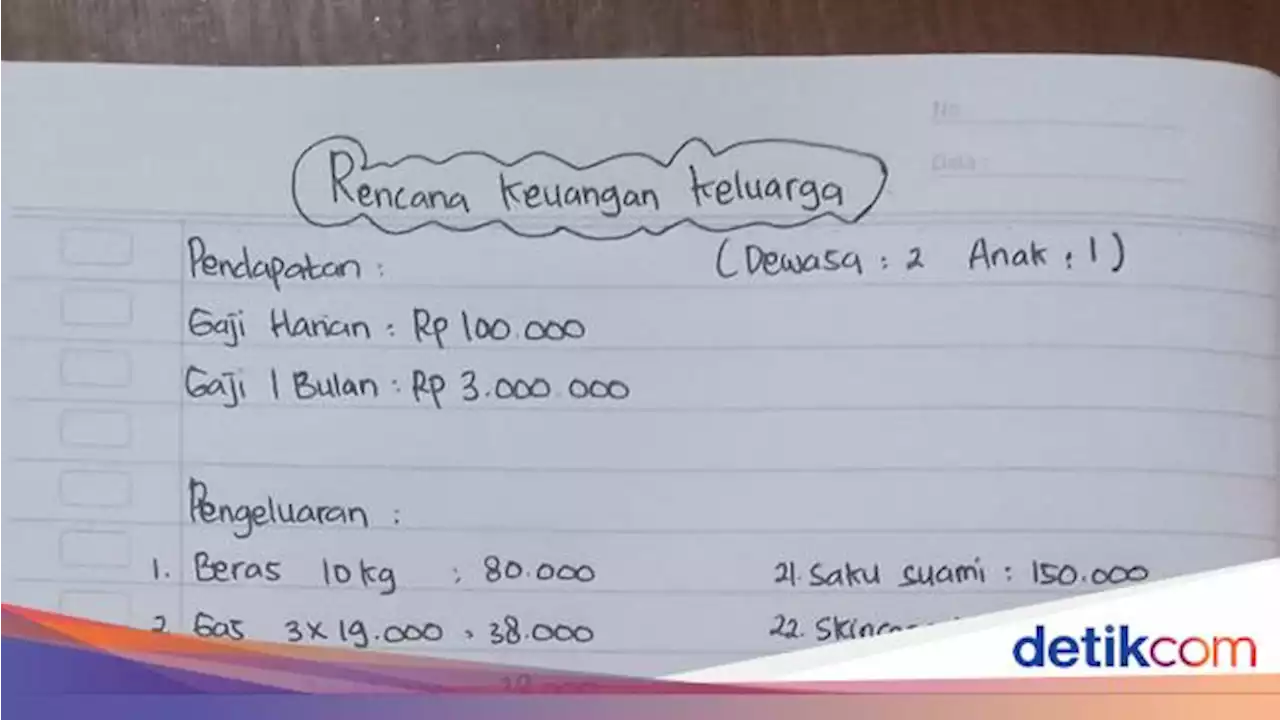 No
Date :
Rencana Keuangan Keluarga
Pendapatan : (Dewasa : 2 Anak : 1)
Gaji Harian : Rp 100.000
Gaji 1 Bulan : Rp 3.000.000
Pengeluaran :
1. Beras 10 kg : 80.000
21. Saku suami : 150.000
2. Gas 3 x 19.000 = 38.000
22.
detikcom